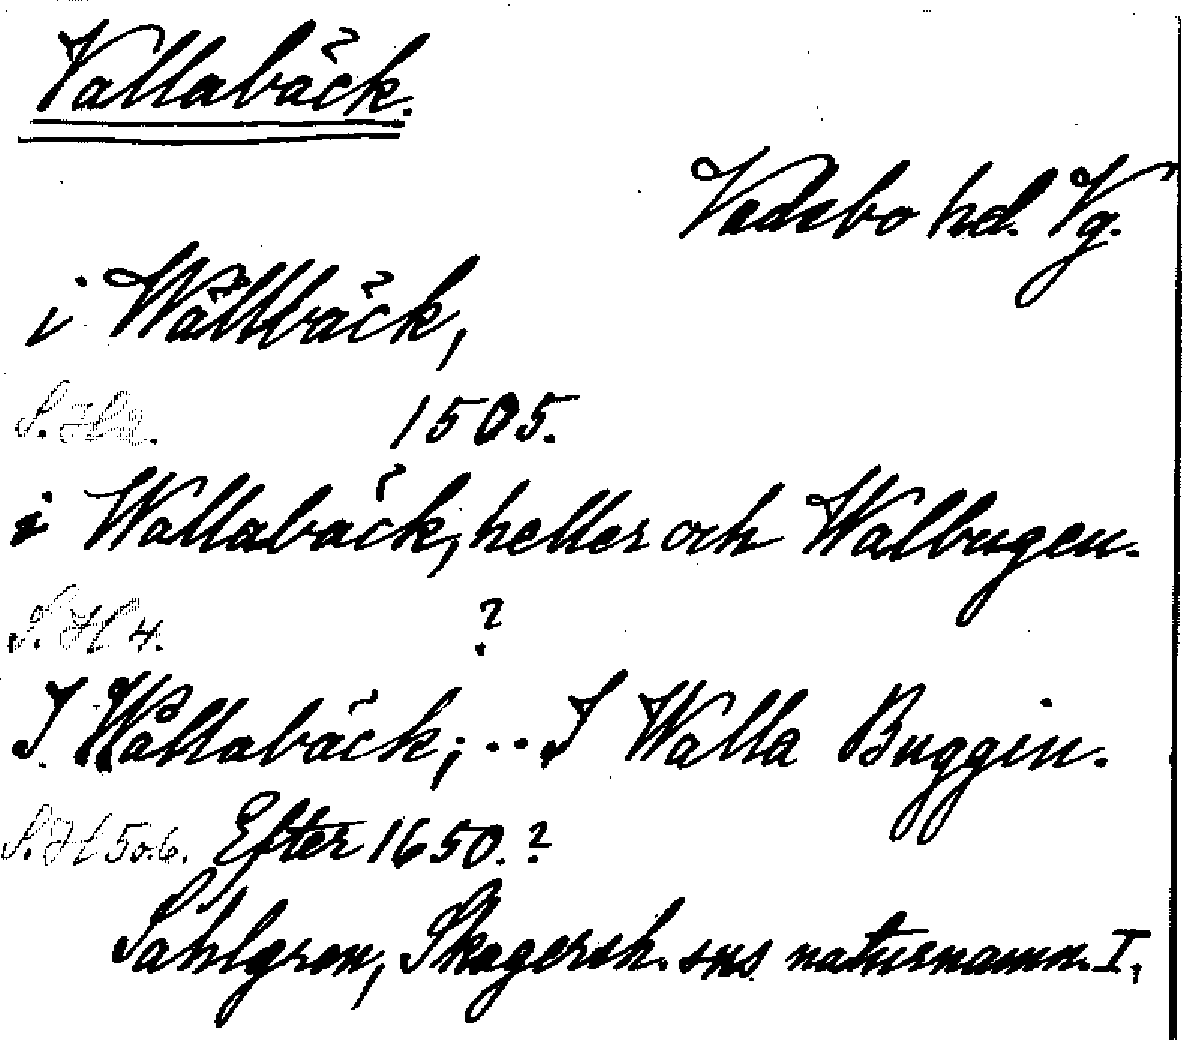 Vallabäck.
Vadsbo hd. Vg.
i Wällbäck,
S. H 2. 1505.
i Wallabäck, heller och Walbugen.
S. H 4. ?
I Wållabäck; ... I Walla Buggin.
S. H 5 o. 6. Efter 1650.?
Sahlgren, Skagersh. sns naturnamn. I,